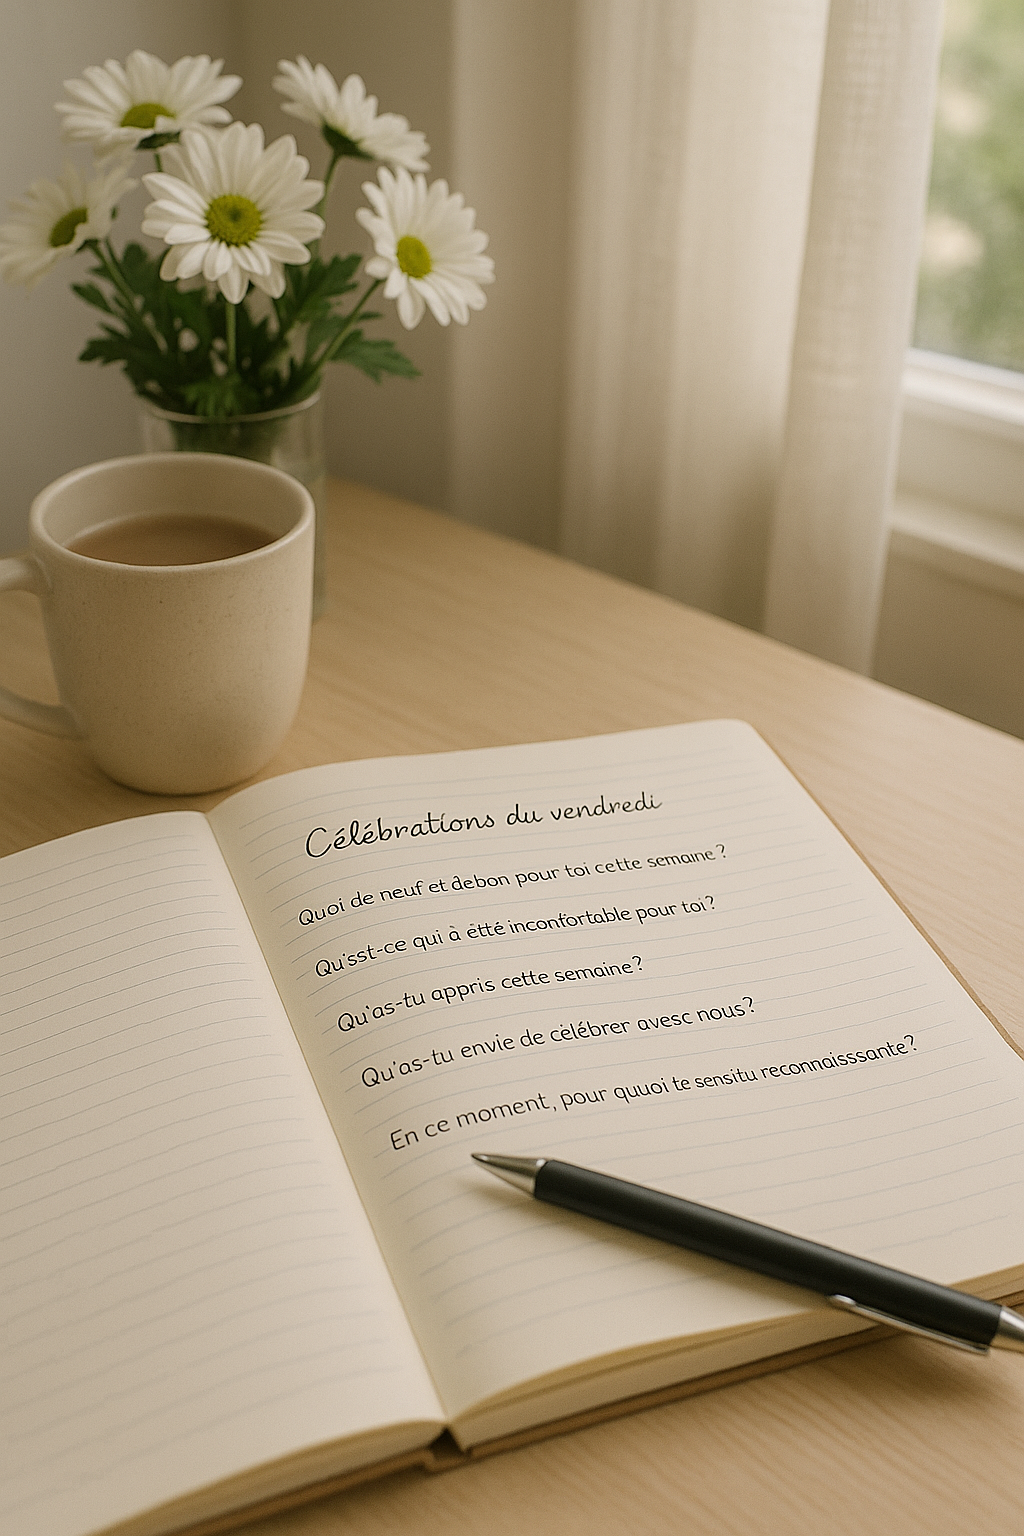 Célébrations du vendredi
Quoi de neuf et debon pour toi cette semaine?
Qu'sst-ce qui à étté inconfortable pour toi?
Qu'as-tu appris cette semaine?
Qu'as-tu envie de célébrer avesc nous?
En ce moment, pour quuoi te sensitu reconnaisssante?